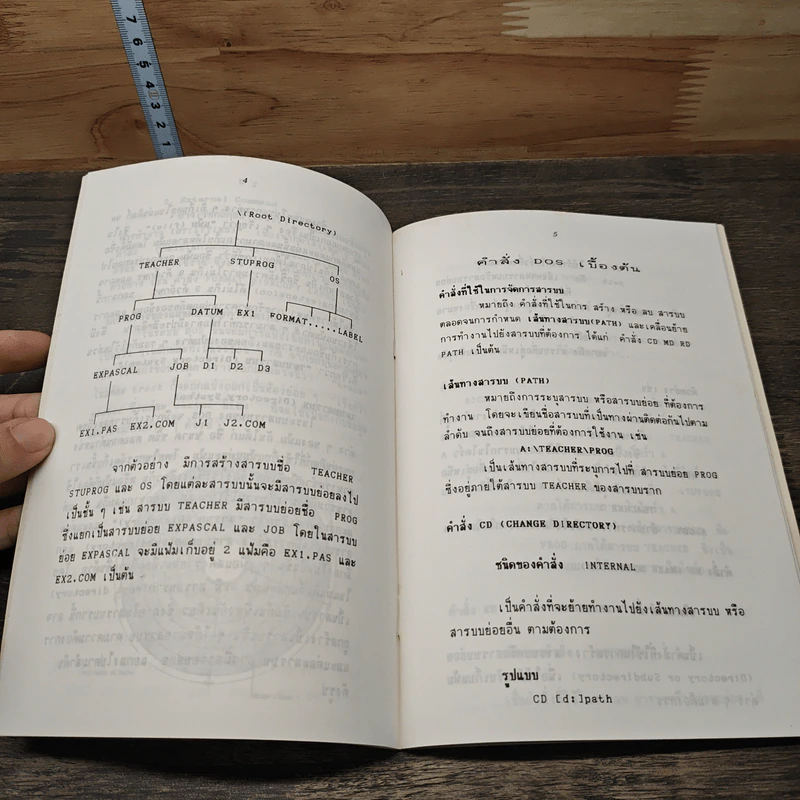 7 6 5 4 3 2 1
4
\(Root Directory)
TEACHER STUPROG OS
PROG DATUM EX1 FORMAT.....LABEL
EXPASCAL JOB D1 D2 D3
EX1.PAS EX2.COM J1 J2.COM
จากตัวอย่าง มีการสร้างสารบบชื่อ TEACHER
STUPROG และ OS โดยแต่ละสารบบนั้นจะมีสารบบย่อยลงไป
เป็นชั้น ๆ เช่น สารบบ TEACHER มีสารบบย่อยชื่อ PROG
ซึ่งแยกเป็นสารบบย่อย EXPASCAL และ JOB โดยในสารบบ
ย่อย EXPASCAL จะมีแฟ้มเก็บอยู่ 2 แฟ้มคือ EX1.PAS และ
EX2.COM เป็นต้น
5
คำสั่ง DOS เบื้องต้น
คำสั่งที่ใช้ในการจัดการสารบบ
หมายถึง คำสั่งที่ใช้ในการ สร้าง หรือ ลบ สารบบ
ตลอดจนการกำหนด เส้นทางสารบบ(PATH) และเคลื่อนย้าย
การทำงานไปยังสารบบที่ต้องการ ได้แก่ คำสั่ง CD MD RD
PATH เป็นต้น
เส้นทางสารบบ (PATH)
หมายถึงการระบุสารบบ หรือสารบบย่อย ที่ต้องการ
ทำงาน โดยจะเขียนชื่อสารบบที่เป็นทางผ่านติดต่อกันไปตาม
ลำดับ จนถึงสารบบย่อยที่ต้องการใช้งาน เช่น
A:\TEACHER\PROG
เป็นเส้นทางสารบบที่ระบุการไปที่ สารบบย่อย PROG
ซึ่งอยู่ภายใต้สารบบ TEACHER ของสารบบราก
คำสั่ง CD (CHANGE DIRECTORY)
ชนิดของคำสั่ง INTERNAL
เป็นคำสั่งที่จะย้ายทำงานไปยังเส้นทางสารบบ หรือ
สารบบย่อยอื่น ตามต้องการ
รูปแบบ
CD [d:]path